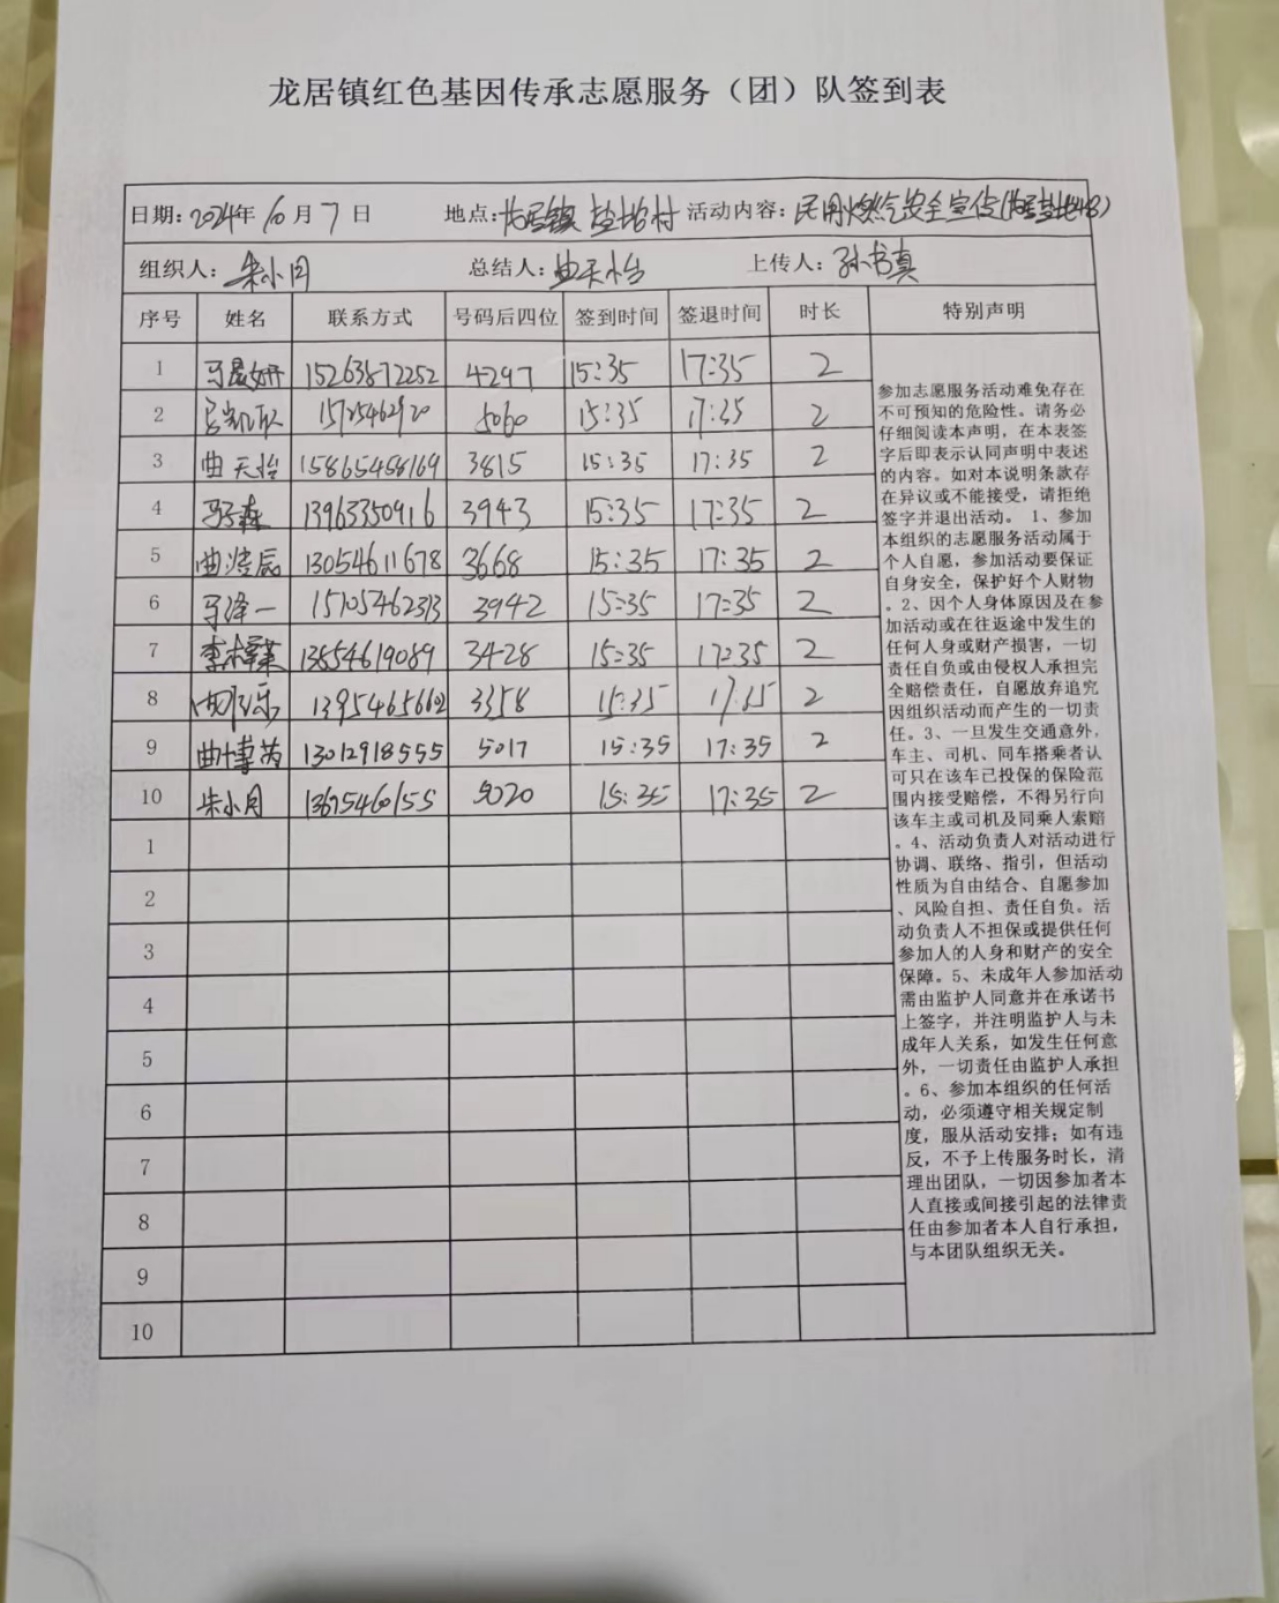 龙居镇红色基因传承志愿服务（团）队签到表
日期：2024年10月7日 地点：龙居镇 盐坨村 活动内容：民用燃气安全宣传
组织人：朱小月 总结人：曲天怡 上传人：孙书真
序号 姓名 联系方式 号码后四位 签到时间 签退时间 时长 特别声明
1 马晨妍 15263872252 4297 15:35 17:35 2
2 5060 15:35 17:35 2
3 曲天怡 15865458169 3815 15:35 17:35 2
4 13963350916 3943 15:35 17:35 2
5 13054611678 3668 15:35 17:35 2
6 马泽一 15105462313 3942 15:35 17:35 2
7 13854619089 3428 15:35 17:35 2
8 13954656602 3358 15:35 17:35 2
9 曲博芮 13012918555 5017 15:35 17:35 2
10 朱小月 13675460155 5020 15:35 17:35 2
1
2
3
4
5
6
7
8
9
10
参加志愿服务活动难免存在
不可预知的危险性。请务必
仔细阅读本声明，在本表签
字后即表示认同声明中表述
的内容。如对本说明条款存
在异议或不能接受，请拒绝
签字并退出活动。 1、参加
本组织的志愿服务活动属于
个人自愿，参加活动要保证
自身安全，保护好个人财物
。2、因个人身体原因及在参
加活动或在往返途中发生的
任何人身或财产损害，一切
责任自负或由侵权人承担完
全赔偿责任，自愿放弃追究
因组织活动而产生的一切责
任。3、一旦发生交通意外，
车主、司机、同车搭乘者认
可只在该车已投保的保险范
围内接受赔偿，不得另行向
该车主或司机及同乘人索赔
。4、活动负责人对活动进行
协调、联络、指引，但活动
性质为自由结合、自愿参加
、风险自担、责任自负。活
动负责人不担保或提供任何
参加人的人身和财产的安全
保障。5、未成年人参加活动
需由监护人同意并在承诺书
上签字，并注明监护人与未
成年人关系，如发生任何意
外，一切责任由监护人承担
。6、参加本组织的任何活
动，必须遵守相关规定制
度，服从活动安排；如有违
反，不予上传服务时长，清
理出团队，一切因参加者本
人直接或间接引起的法律责
任由参加者本人自行承担，
与本团队组织无关。